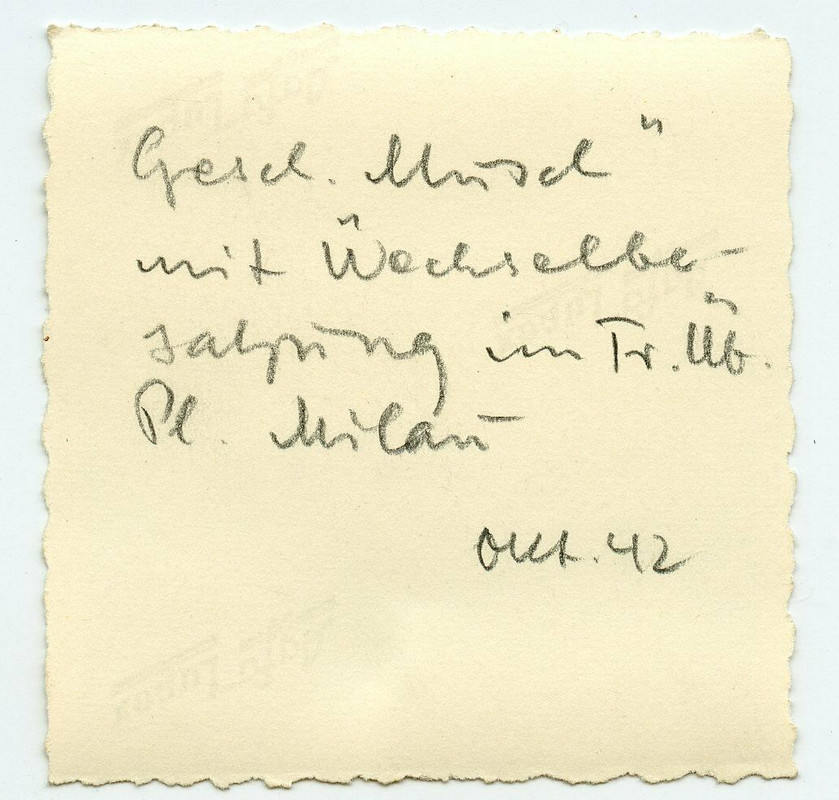 Gesch.
mit Wechselbe-
satzung im Tr. Üb.
Pl. Milau
Okt. 42